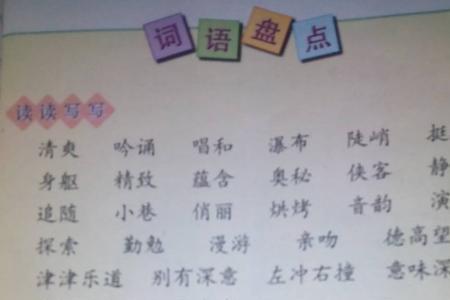 词语盘点
读读写写
清爽 吟诵 唱和 瀑布 陡峭 挺
身躯 精致 蕴含 奥秘 侠客 静
追随 小巷 俏丽 烘烤 音韵 演
探索 勤勉 漫游 亲吻 德高望
津津乐道 别有深意 左冲右撞 意味深